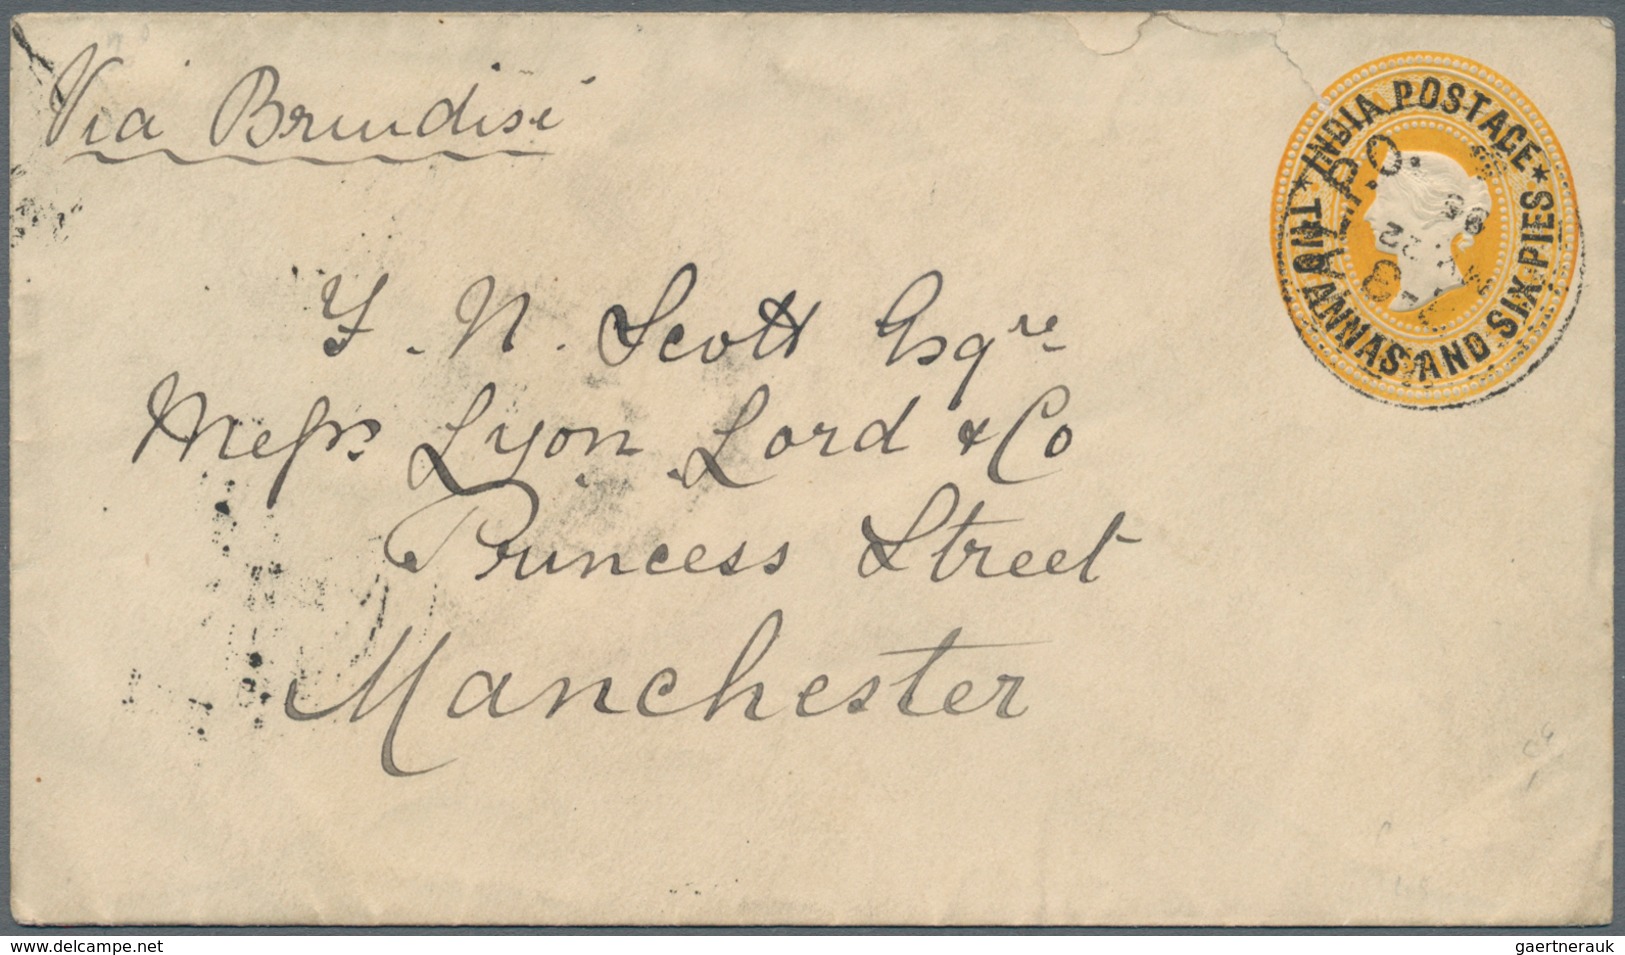 Via Brindisi
INDIA POSTAGE
TWO ANNAS AND SIX PIES
P.O.
22
Y. N. Scott Esqre
Messrs Lyon Lord & Co
Princess Street
Manchester
www.delcampe.net
gaertnerauk